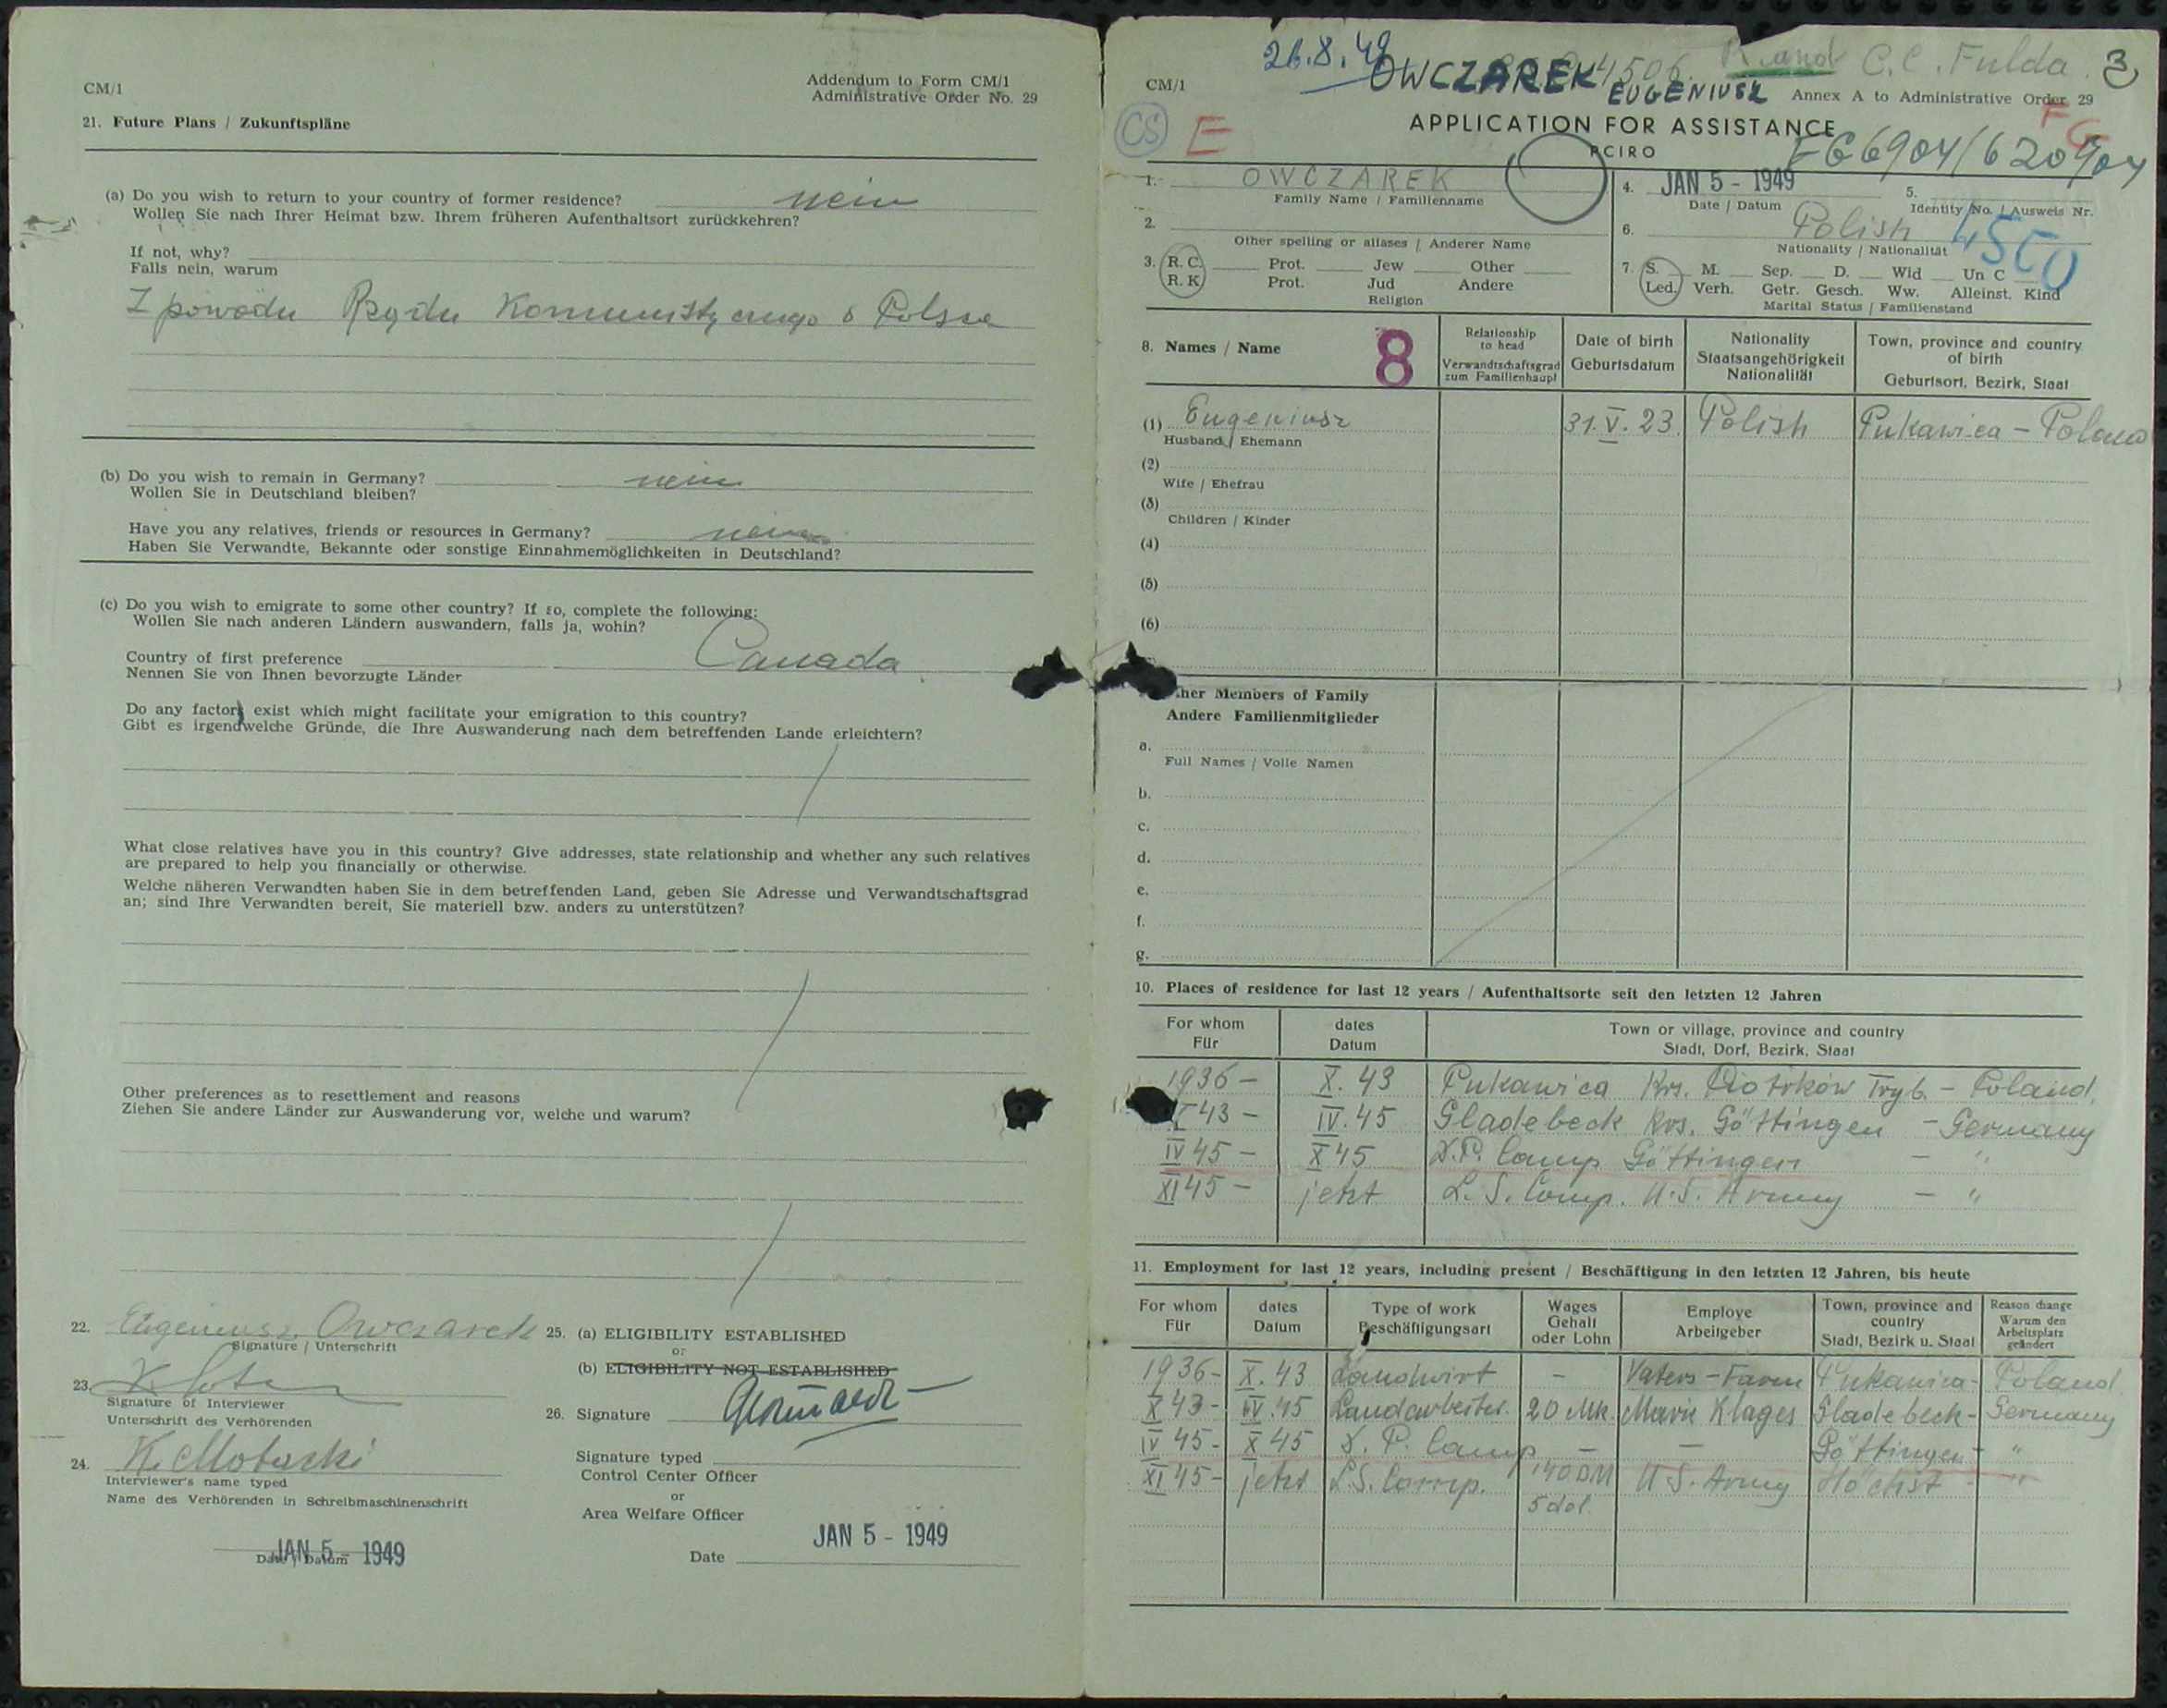 CM/1
Addendum to Form CM/1
Administrative Order No. 29
21. Future Plans / Zukunftspläne
(a) Do you wish to return to your country of former residence? nein
Wollen Sie nach Ihrer Heimat bzw. Ihrem früheren Aufenthaltsort zurückkehren?
If not, why?
Falls nein, warum
Z powodu Rządu Komunistycznego Polsce
(b) Do you wish to remain in Germany? nein
Wollen Sie in Deutschland bleiben?
Have you any relatives, friends or resources in Germany? nein
Haben Sie Verwandte, Bekannte oder sonstige Einnahmemöglichkeiten in Deutschland?
(c) Do you wish to emigrate to some other country? If so, complete the following:
Wollen Sie nach anderen Ländern auswandern, falls ja, wohin?
Country of first preference Canada
Nennen Sie von Ihnen bevorzugte Länder
Do any factors exist which might facilitate your emigration to this country?
Gibt es irgendwelche Gründe, die Ihre Auswanderung nach dem betreffenden Lande erleichtern?
What close relatives have you in this country? Give addresses, state relationship and whether any such relatives
are prepared to help you financially or otherwise.
Welche näheren Verwandten haben Sie in dem betreffenden Land, geben Sie Adresse und Verwandtschaftsgrad
an; sind Ihre Verwandten bereit, Sie materiell bzw. anders zu unterstützen?
Other preferences as to resettlement and reasons
Ziehen Sie andere Länder zur Auswanderung vor, welche und warum?
22. Eugeniusz Owczarek
Signature / Unterschrift
23.
Signature of Interviewer
Unterschrift des Verhörenden
24.
Interviewer's name typed
Name des Verhörenden in Schreibmaschinenschrift
JAN 5 - 1949
Date / Datum
25. (a) ELIGIBILITY ESTABLISHED
or
(b) ELIGIBILITY NOT ESTABLISHED
26. Signature
Signature typed
Control Center Officer
or
Area Welfare Officer
JAN 5 - 1949
Date
26.8.49 OWCZAREK EUGENIUSZ C.C. Fulda 3
CM/1
Annex A to Administrative Order 29
CS E
APPLICATION FOR ASSISTANCE
PCIRO
EG 6904/620904
1. OWCZAREK
Family Name / Familienname
4. JAN 5 - 1949
Date / Datum
5.
Identity No. / Ausweis Nr.
2.
Other spelling or aliases / Anderer Name
6. Polish
Nationality / Nationalität
4560
3. R. C. Prot. Jew Other
R. K. Prot. Jud Andere
Religion
7. S. M. Sep. D. Wld Un C
Led. Verh. Getr. Gesch. Ww. Alleinst. Kind
Marital Status / Familienstand
8. Names / Name
8
Relationship to head
Verwandtschaftsgrad zum Familienhaupt
Date of birth
Geburtsdatum
Nationality
Staatsangehörigkeit
Nationalität
Town, province and country of birth
Geburtsort, Bezirk, Staat
(1) Eugeniusz 31.V.23. Polish Pukawica - Poland
Husband / Ehemann
(2)
Wife / Ehefrau
(3)
Children / Kinder
(4)
(5)
(6)
her Members of Family
Andere Familienmitglieder
a.
Full Names / Volle Namen
b.
c.
d.
e.
f.
g.
10. Places of residence for last 12 years / Aufenthaltsorte seit den letzten 12 Jahren
For whom
Für
dates
Datum
Town or village, province and country
Stadt, Dorf, Bezirk, Staat
1936 - X. 43 Pukawica Krs. Piotrków Tryb. - Poland.
43 - IV. 45 Gladebeck Krs. Göttingen - Germany
IV 45 - X 45 D.P. Camp Göttingen - "
XI 45 - jetzt L.S. Comp. U.S. Army - "
11. Employment for last 12 years, including present / Beschäftigung in den letzten 12 Jahren, bis heute
For whom
Für
dates
Datum
Type of work
Beschäftigungsart
Wages
Gehalt
oder Lohn
Employe
Arbeitgeber
Town, province and country
Stadt, Bezirk u. Staat
Reason change
Warum den Arbeitsplatz geändert
1936 - X. 43 Landwirt - Vaters-Farm Pukawica - Poland
X 43 - IV. 45 Landarbeiter 20 Mk. Marie Klages Gladebeck - Germany
IV 45 - X 45 D.P. Camp - - Göttingen - "
XI 45 - jetzt L.S. Comp. 140 DM U.S. Army Höchst - "
5 dol.